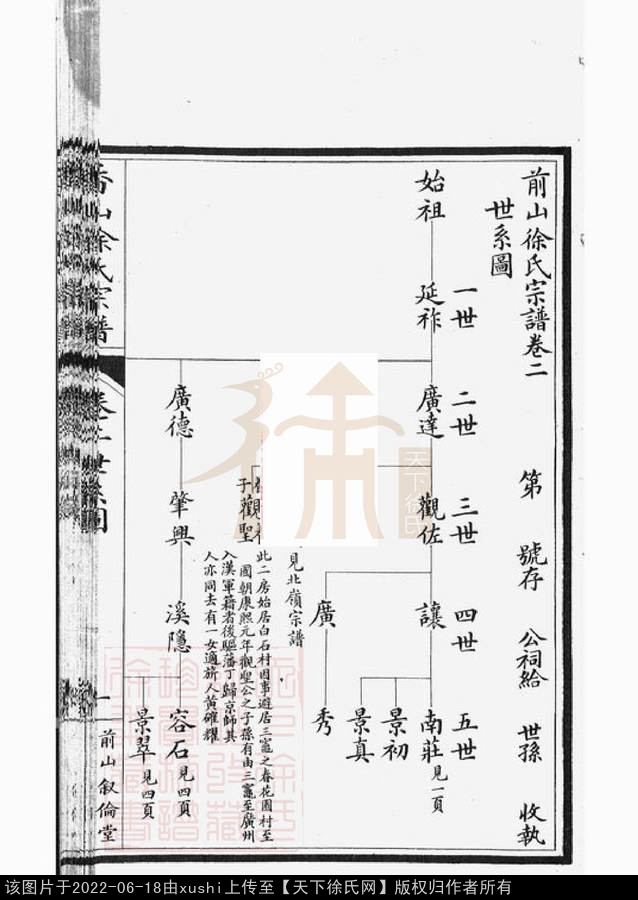 前山徐氏宗譜卷二 第 號存 公祠給 世孫 收執
世系圖
一世 二世 三世 四世 五世
始祖 延祚 廣達 觀佐 讓 南莊 見一頁
景初
景真
廣 秀
見北嶺宗譜
此二房始居白石村因事遊居三竈之春花園村至
國朝康熙元年觀聖公之子孫有由三竈至廣州
入漢軍籍者後驅藩丁歸京師其
人亦同去有一女適旂人黃確耀
觀聖
子
廣德 肇興 溪隱 容石 見四頁
景翠 見四頁
香山徐氏宗譜 卷二世系圖 一 前山叙倫堂
天下徐氏
该图片于2022-06-18由xushi上传至【天下徐氏网】版权归作者所有